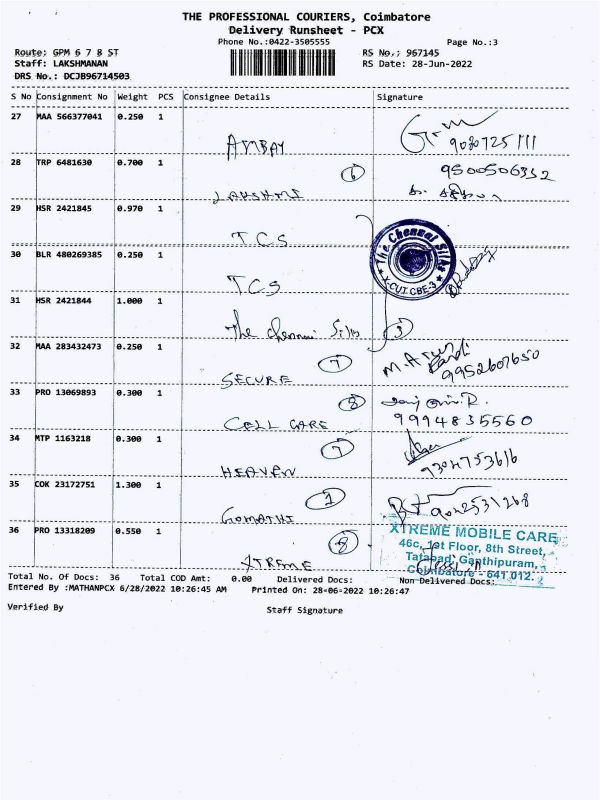 THE PROFESSIONAL COURIERS, Coimbatore
Delivery Runsheet - PCX
Phone No.:0422-3505555 Page No.:3
Route: GPM 6 7 8 ST RS No.: 967145
Staff: LAKSHMANAN RS Date: 28-Jun-2022
DRS No.: DCJB96714503
S No Consignment No Weight PCS Consignee Details Signature
27 MAA 566377041 0.250 1
AMBAY
28 TRP 6481630 0.700 1 6 9500506332
LAKSHMI
29 HSR 2421845 0.970 1
TCS
The Chennai Silks
X-CUT CBE-3
30 BLR 480269385 0.250 1
TCS
31 HSR 2421844 1.000 1
The Chennai Silks 3
32 MAA 283432473 0.250 1 7
SECURE 9952607650
33 PRO 13069893 0.300 1 8
CELL CARE 9994835560
34 MTP 1163218 0.300 1 7
HEAVEN 9304753616
35 COK 23172751 1.300 1 1
GOMATHI 9042531268
36 PRO 13318209 0.550 1 8
XTREME
XTREME MOBILE CARE
46c, 1st Floor, 8th Street,
Tatabad, Ganthipuram,
Coimbatore - 641 012.
Total No. Of Docs: 36 Total COD Amt: 0.00 Delivered Docs: Non Delivered Docs:
Entered By :MATHANPCX 6/28/2022 10:26:45 AM Printed On: 28-06-2022 10:26:47
Verified By Staff Signature